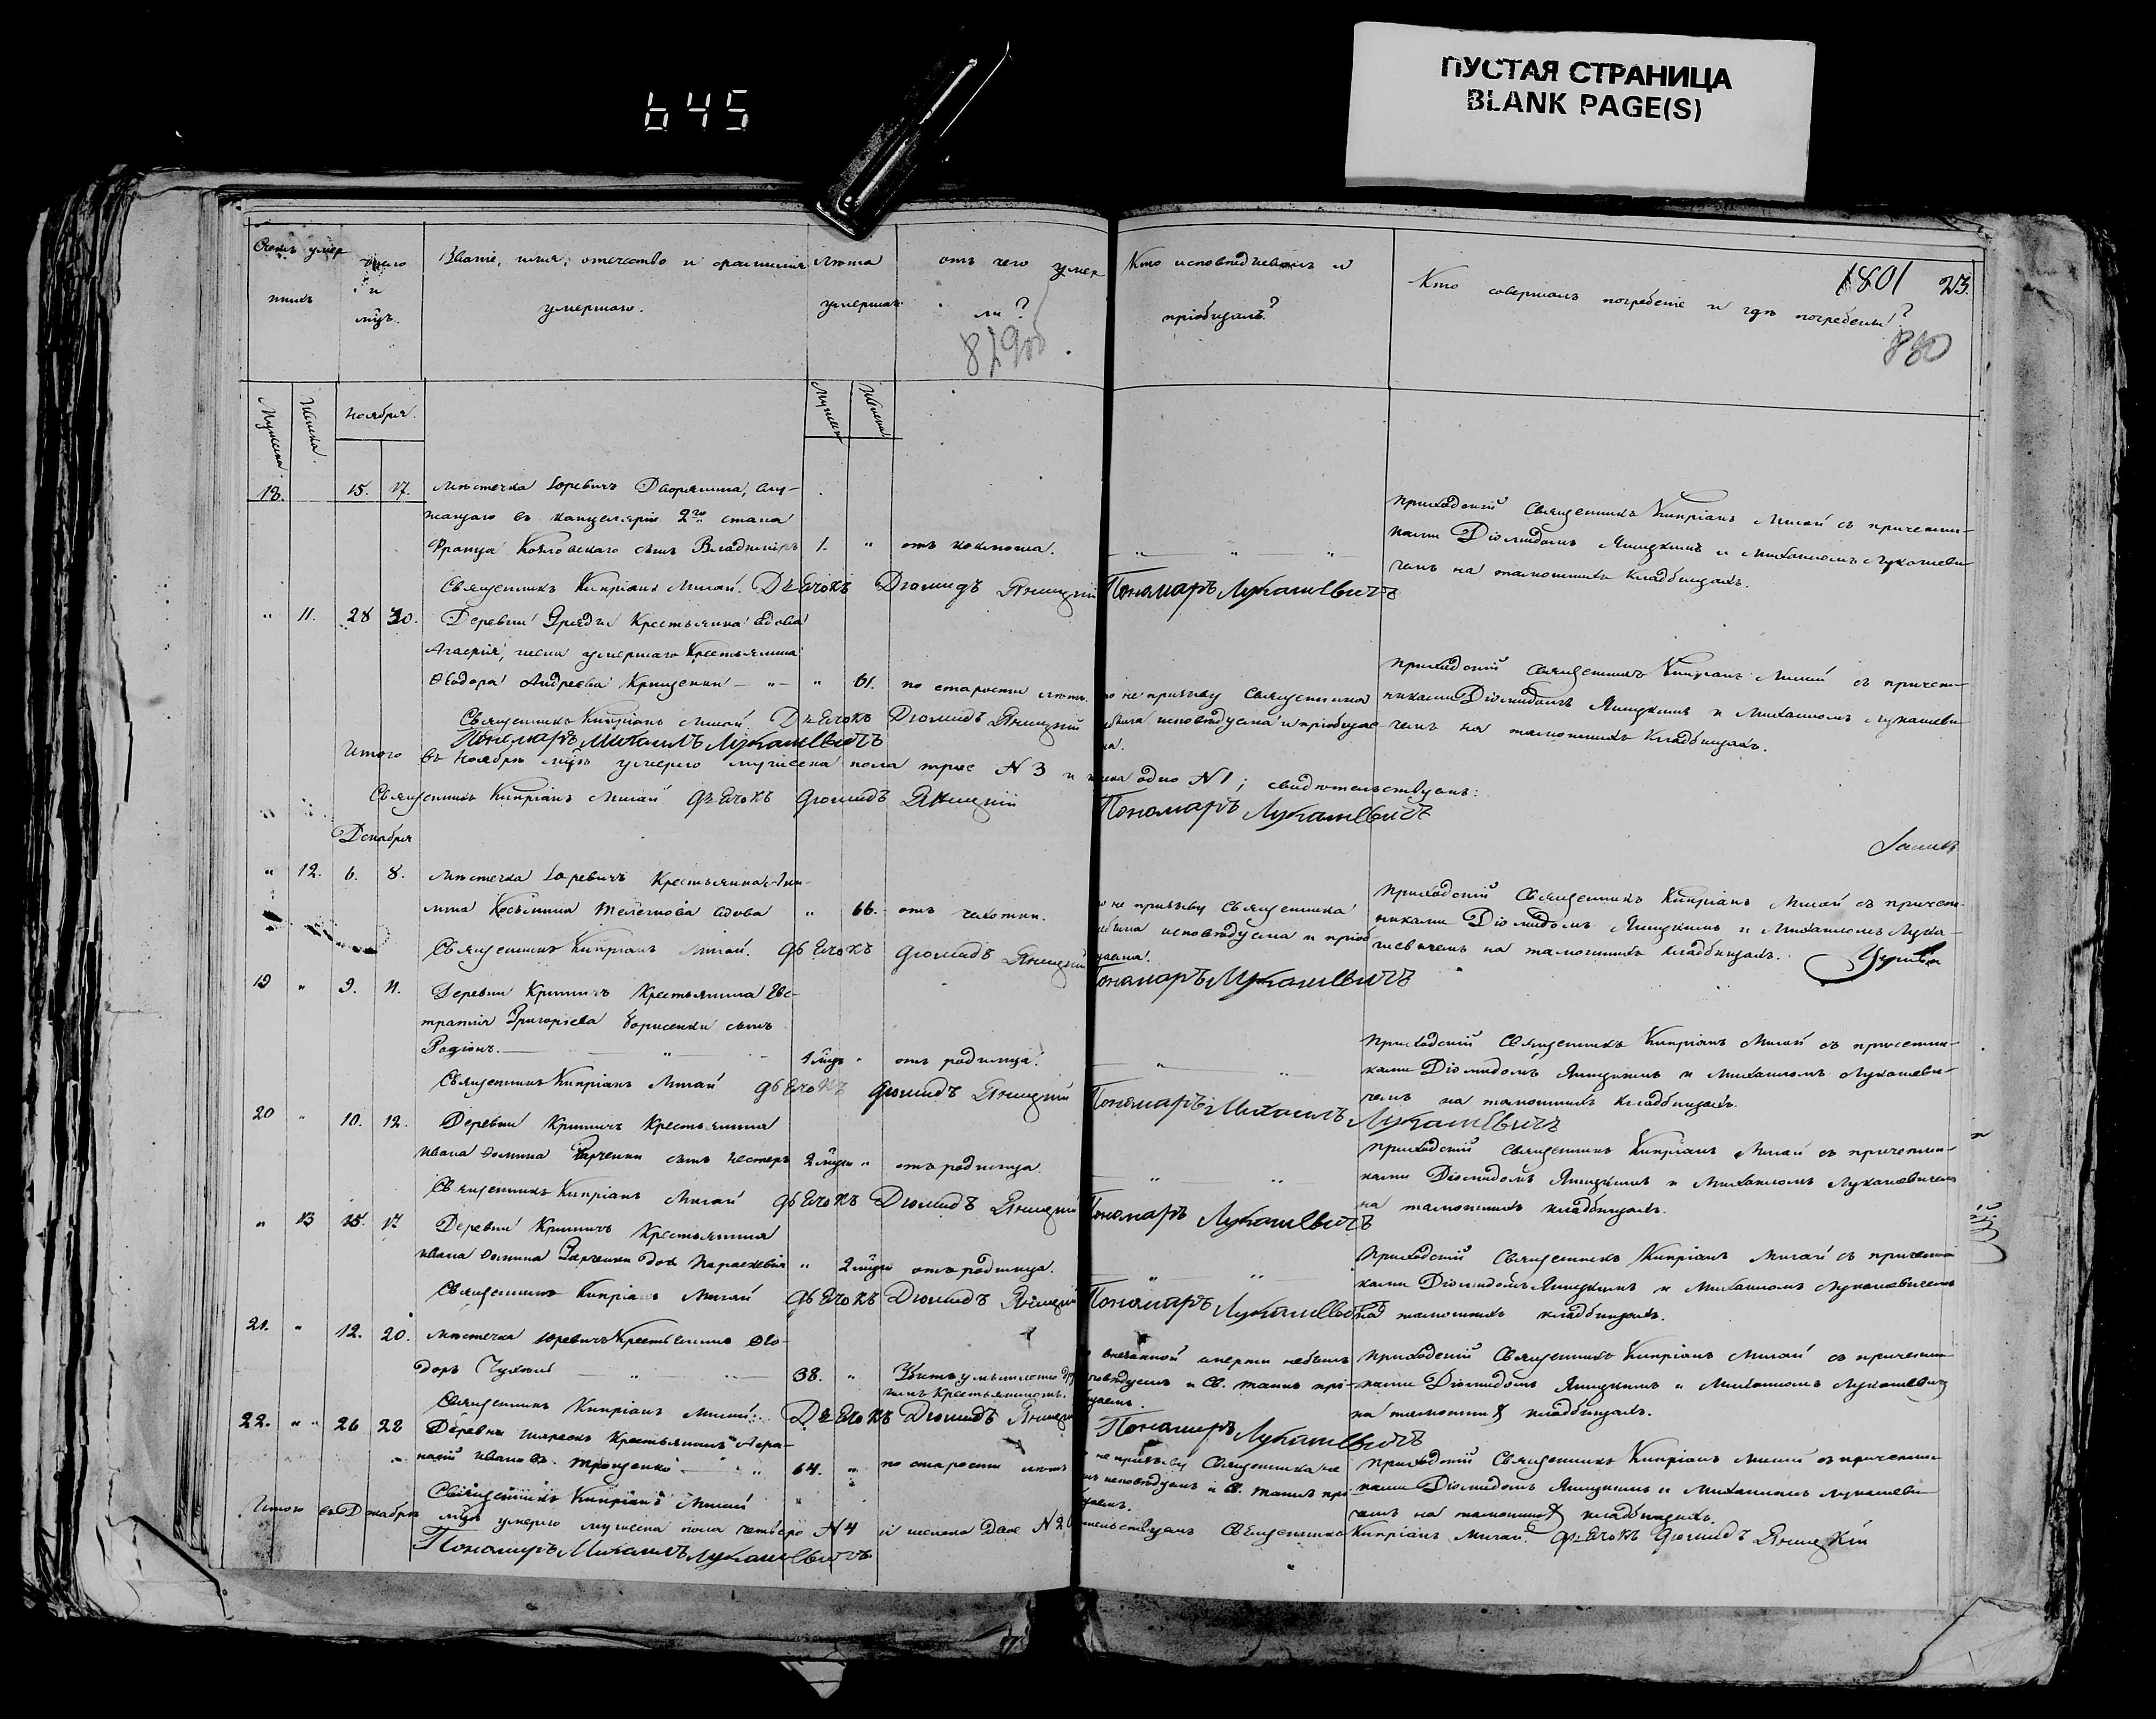 645
ПУСТАЯ СТРАНИЦА
BLANK PAGE(S)
Счетъ умер
шихъ
число
и
мцъ.
Званіе, имя, отечество и фамилія
умершаго.
лѣта
умершаго
отъ чего умер
ли?
Кто исповѣдывалъ и
пріобщалъ?
Кто совершалъ погребеніе и гдѣ погребены?
1801 23.
830
Мужеска.
Женска.
ноября.
Мужеска
Женска
18. 15. 17. мѣстечка Юревичъ Дворянина, слу-
жащаго въ канцеляріи 2го стана
Франца сынъ Владимиръ 1. " отъ коклюша. " " "
приходскій Священникъ Кипріанъ Мигай съ причетни-
ками Діомидомъ Яницкимъ и Михаиломъ Лукашеви-
чемъ на тамошнихъ кладбищахъ.
Священникъ Кипріанъ Мигай. Дьячокъ Диомидъ Яницкій Пономаръ Лукашевичъ
" 11. 28 30. Деревни Крестьянка вдова
Агафія, жена умершаго Крестьянина
Ѳеодора Андреева " " 61. по старости лѣтъ.
по не призыву Священника
небыла исповѣдуема и пріобщае
ма.
приходскій Священникъ Кипріанъ Мигай съ причет-
никами Діомидомъ Яницкимъ и Михаиломъ Лукашеви-
чемъ на тамошнихъ кладбищахъ.
Священникъ Кипріанъ Мигай Дьячокъ Диомидъ Яницкій
Пономаръ Михаилъ Лукашевичъ
Итого въ Ноябрѣ мцѣ умерло мужеска пола трое N 3 и женска одно N 1; свидѣтельствуемъ:
Священникъ Кипріанъ Мигай дьячокъ диомидъ Яницкій Пономаръ Лукашевичъ
Декабря
" 12. 6. 8. мѣстечка Юревичъ Крестьянка
вдова " 66. отъ чахотки.
по не призыву Священника
небыла исповѣдуема и пріоб
щаема.
приходскій Священникъ Кипріанъ Мигай съ причет-
никами Діомидомъ Яницкимъ и Михаиломъ Лука-
шевичемъ на тамошнихъ кладбищахъ.
Священникъ Кипріанъ Мигай. дьячокъ диомидъ Яницкій Пономаръ Лукашевичъ
19 " 9. 11. Деревни Криничъ Крестьянина Евс-
тратія Григоріева Борисенки сынъ
Радіонъ. " 1 мцъ " отъ родимца. " "
приходскій Священникъ Кипріанъ Мигай съ причетни-
ками Діомидомъ Яницкимъ и Михаиломъ Лукашеви-
чемъ на тамошнихъ кладбищахъ.
Священникъ Кипріанъ Мигай дьячокъ диомидъ Яницкій Пономаръ Михаилъ Лукашевичъ
20 " 10. 12. Деревни Криничъ Крестьянина
Ивана Ѳомина сынъ Нестеръ 2 мцъ " отъ родимца. " "
приходскій Священникъ Кипріанъ Мигай съ причетни-
ками Діомидомъ Яницкимъ и Михаиломъ Лукашевичемъ
на тамошнихъ кладбищахъ.
Священникъ Кипріанъ Мигай дьячокъ Диомидъ Яницкій Пономаръ Лукашевичъ
" 13 15. 17 Деревни Криничъ Крестьянина
Ивана Ѳомина доч Параскевія " 2 мцъ отъ родимца. " "
приходскій Священникъ Кипріанъ Мигай съ причетни-
ками Діомидомъ Яницкимъ и Михаиломъ Лукашевичемъ
на тамошнихъ кладбищахъ.
Священникъ Кипріанъ Мигай дьячокъ Диомидъ Яницкій Пономаръ Лукашевичъ
21. " 12. 20. мѣстечка Юревичъ Крестьянинъ Ѳео-
доръ 38. " Убитъ умышленно
Крестьяниномъ.
внезапной смерти небылъ
исповѣдуемъ и Св. таинъ прі-
общаемъ.
приходскій Священникъ Кипріанъ Мигай съ причетни-
ками Діомидомъ Яницкимъ и Михаиломъ Лукашевич
на тамошних кладбищахъ.
Священникъ Кипріанъ Мигай. Дьячокъ Диомидъ Яницкій Пономаръ Лукашевичъ
22. " " 26 28 Деревни Крестьянинъ Афа-
насій Ивановъ Троценко " 64. " по старости лѣтъ
по не призыву Священника не
былъ исповѣдуемъ и Св. таинъ прі-
общаемъ.
приходскій Священникъ Кипріанъ Мигай съ причетни-
ками Діомидомъ Яницкимъ и Михаиломъ Лукашеви-
чемъ на тамошних кладбищахъ.
Священникъ Кипріанъ Мигай
Итого въ Декабрѣ мцѣ умерло мужеска пола четверо N 4 и женска двое N 2 Священникъ Кипріанъ Мигай дьячокъ диомидъ Яницкій
Пономаръ Михаилъ Лукашевичъ